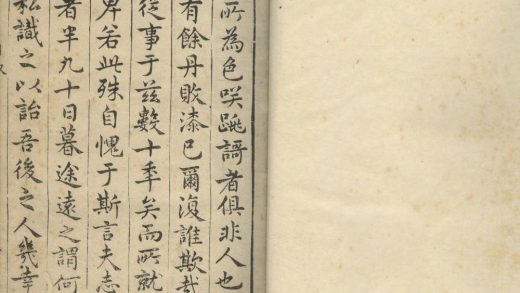 所為色咲跳謌者俱非人也
有餘丹敗漆已爾復誰欺哉
從事于茲數十年矣而所就
卑若此殊自愧于斯言夫志
者半九十日暮途遠之謂何
私識之以詒吾後之人幾幸